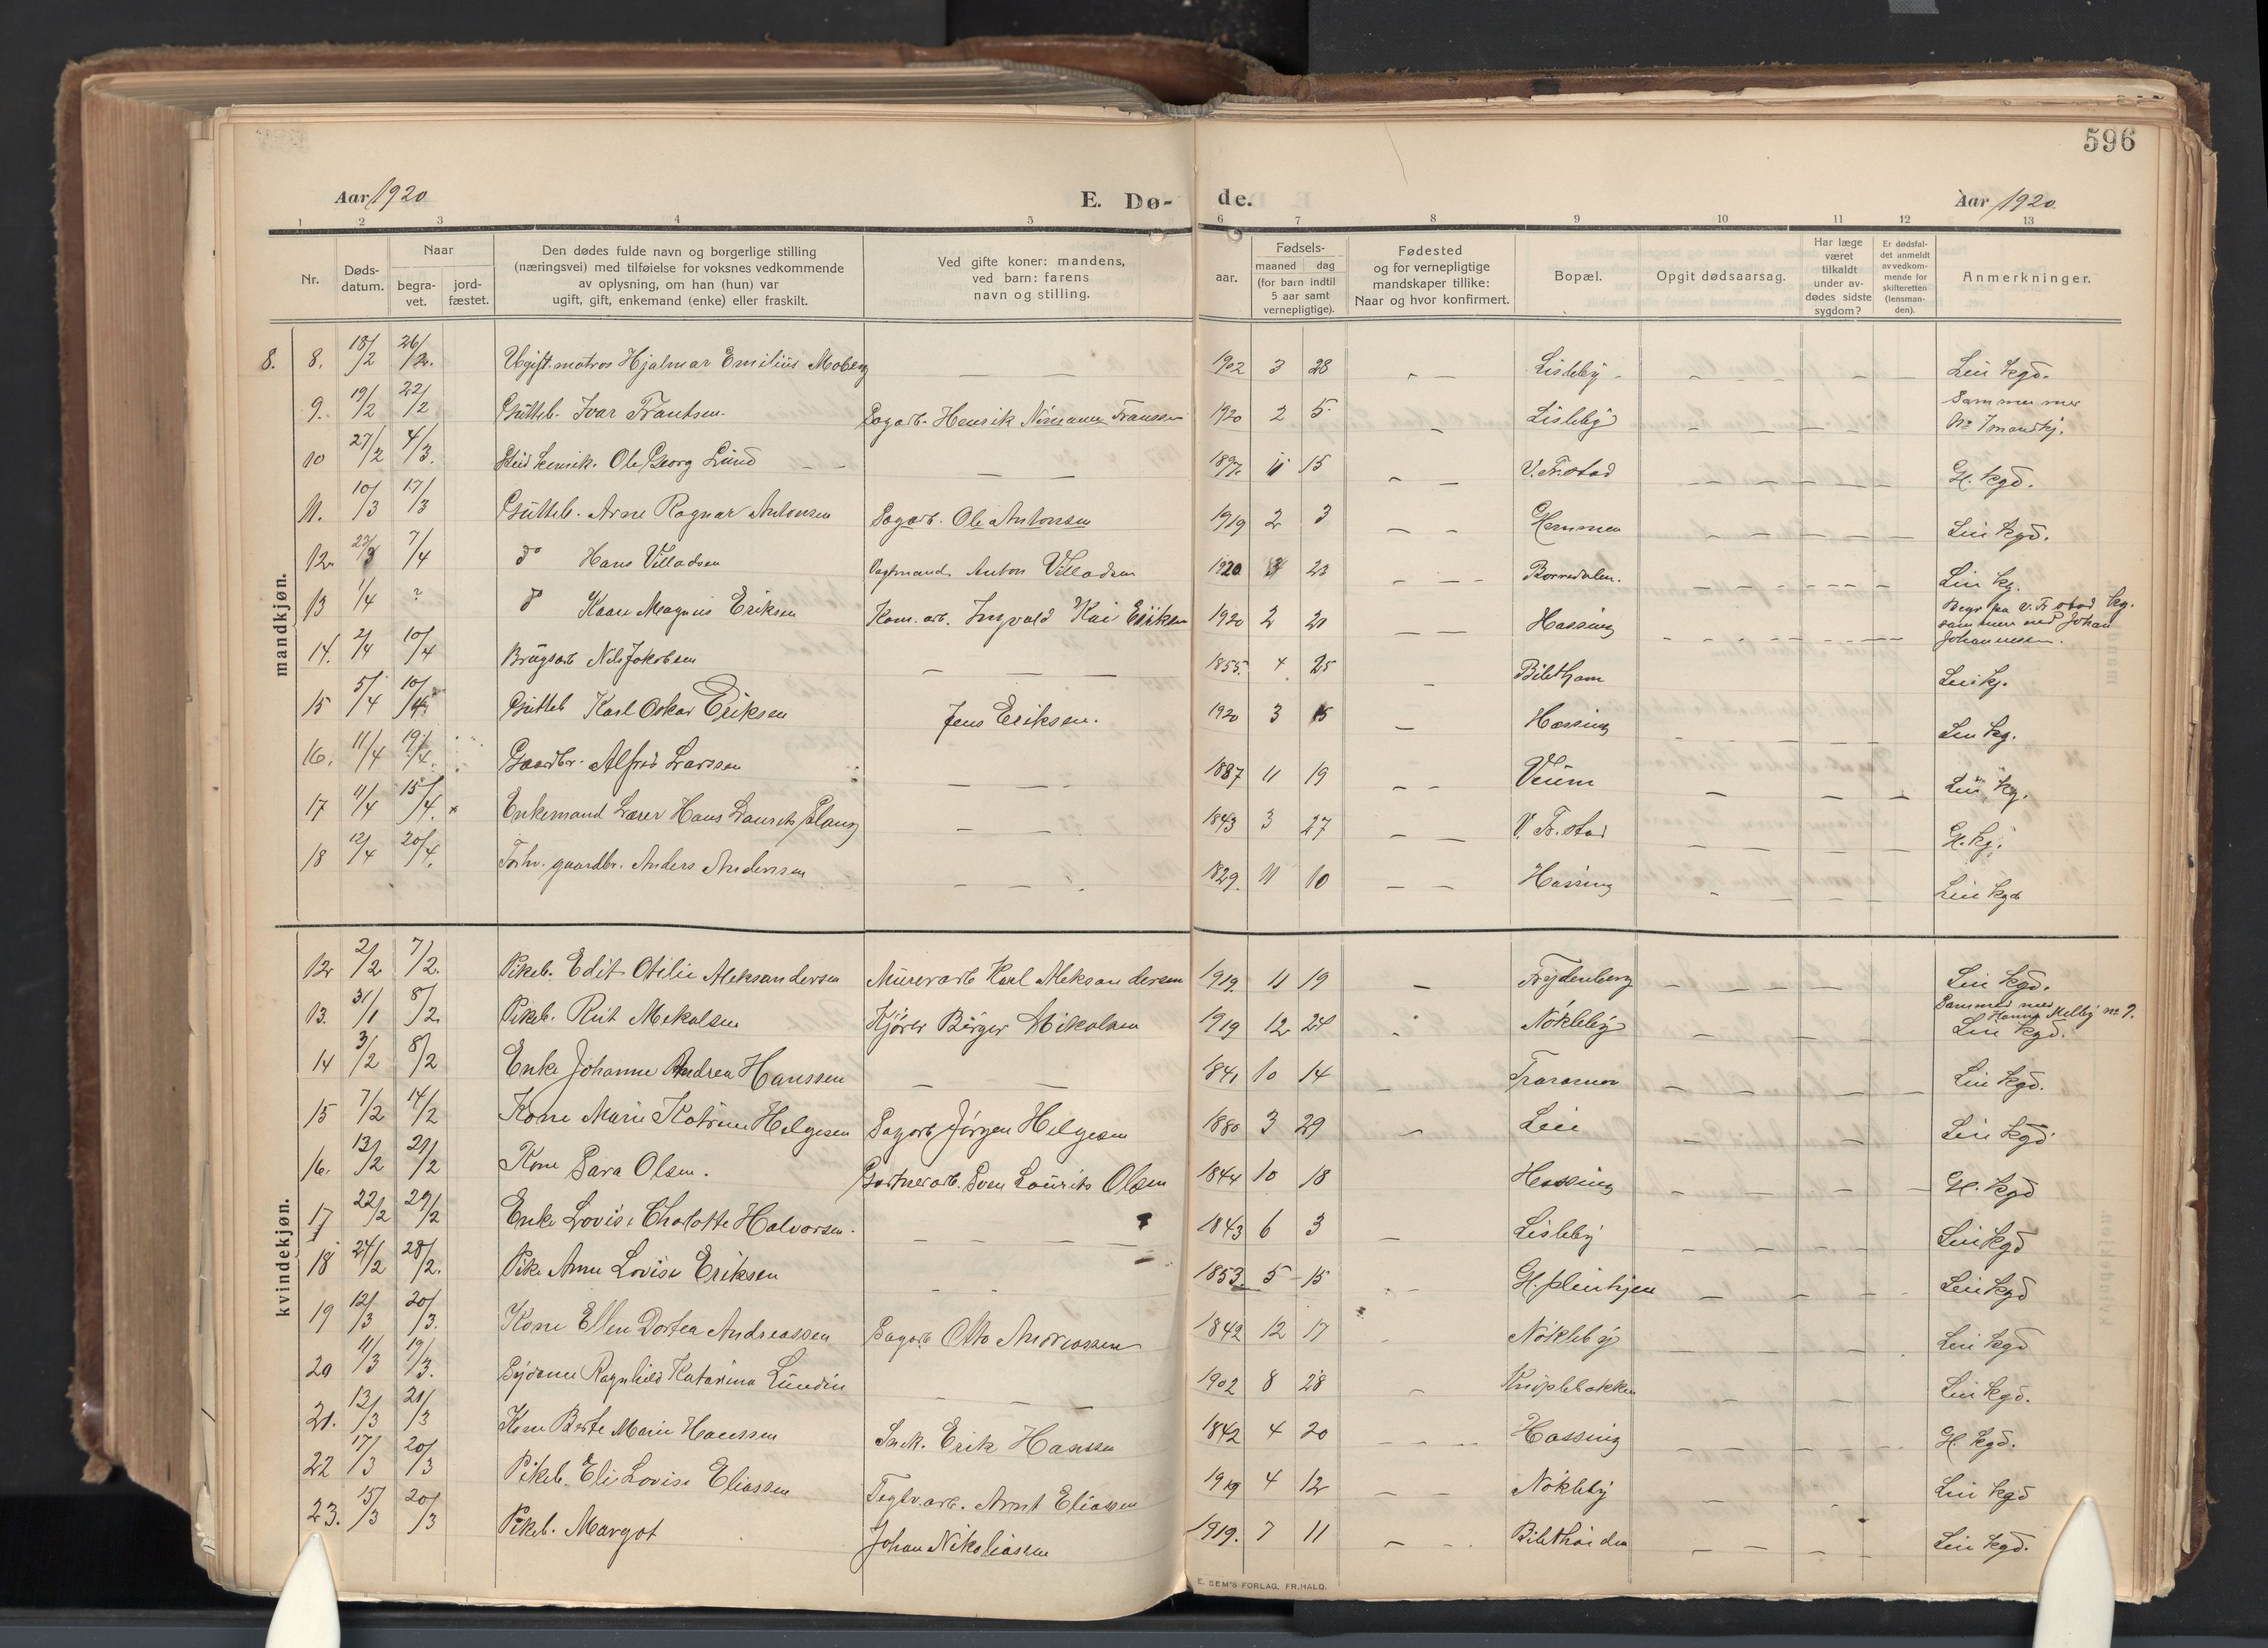 596
Aar 1920 E. Dø- de. Aar 1920
1 2 3 4 5 6 7 8 9 10 11 12 13
Nr. Døds-datum. Naar begra-vet. jord-fæstet. Den dødes fulde navn og borgerlige stilling (næringsvei) med tilføielse for voksnes vedkommende av oplysning, om han (hun) var ugift, gift, enkemand (enke) eller fraskilt. Ved gifte koner: mandens, ved barn: farens navn og stilling. aar. Fødsels- maaned dag (for barn indtil 5 aar samt vernepligtige). Fødested og for vernepligtige mandskaper tillike: Naar og hvor konfirmert. Bopæl. Opgit dødsaarsag. Har læge været tilkaldt under av-dødes sidste sygdom? Er dødsfal-det anmeldt av vedkom-mende for skifteretten (lensman-den). Anmerkninger.
mandkjøn.
8. 8. 18/2 26/2. Ugift. matros Hjalmar Emilius Moberg — — 1902 3 28 — — Lisleby Lein kgd.
9. 19/2 22/2 Gutteb. Ivar Frantsen. Sagarb. Henrik Franssen 1920 2 5 — Lisleby Sammen mer No 7 mandkj.
10 27/2 4/3. Ole Georg Lund — — 15 — — V. Frstad Gl. kgd.
11. 10/3 17/3 Gutteb. Arne Ragnar Antonsen Sagarb. Ole Antonsen 1919 2 3 — — Lein kgd.
12. 23/3 7/4 do Hans Villadsen Vagtmand Anton Villadsen 1920 3 23 — — Borredalen. Lein kg.
13 1/4 ? do Kaare Magnus Eriksen Kom. arb. Ingvald Kai Eriksen 1920 2 21 — — Hassing Begr paa V. Fr stad kg. sammen med Johan Johannessen.
14. 2/4 10/4 Brugsarb Nils Jakobsen — — 1855. 4 25 — Lein kj.
15 5/4 10/4 Gutteb Karl Oskar Eriksen Jens Eriksen. 1920 3 15 — Hassing Lein kg.
16. 11/4 19/4. Gaardbr. Alfred Larssen — — 1887 11 19 — — Veum Lein kg.
17 11/4 15/4. x Enkemand Lærer Hans Laurits — — 1843 3 27 — — V. Fr. stad Gl. kj.
18 12/4 20/4. Forhv. gaardbr. Anders Andersen — — 1829. 11 10 — — Hassing Lein kgd
kvindekjøn.
12 2/2 7/2. Pikeb. Edit Otilie Aleksandersen Murerarb Karl Aleksandersen 1919. 11 19 — Frydenberg Lein kgd.
13. 31/1 8/2 Pikeb. Rut Mekalsen Kjører Birger Mikalsen 1919 12 24 Nøkleby Sammen med Hanna Melby no 9. Lein kgd.
14 3/2 8/2 Enke Johanne Andrea Hanssen — — 1841 10 14 — Traraamen Lein kgd.
15 7/2 14/2 Kone Marie Katrine Helgesen Sagarb Jörgen Helgesen 1880 3 29 — Lein Lein kgd.
16. 13/2 21/2 Kone Sara Olsen. Gartnerarb. Sven Laurits Olsen 1844 10 18 Hassing Gl. kgd
17 22/2 29/2 Enke Lovise Charlotte Halvorsen. — — 1843 6 3 — Lisleby Lein kgd
18 24/2 28/2. Pike Anne Lovise Eriksen — — 1853. 5 15 Gl. pleiehjem Lein kgd
19 12/3 20/3. Kone Ellen Dortea Andreassen Sagarb Otto Andreassen 1842 12 17 Nøkleby Lein kgd
20 11/3 19/3. Sydame Ragnhild Katarina Lundin — — 1902 8 28 — Kniplebakken Lein kgd.
21. 13/3 21/3 Kone Berte Marie Hanssen Snek. Erik Hanssen 1842 4 20 — — Hassing Gl. kgd.
22 17/3 20/3 Pikeb. Eli Lovise Eliassen Teglv. arb. Arnt Eliassen 1919 4 12 — — Nøkleby Lein kgd
23. 15/3 20/3 Pikeb. Margot Johan Nikolaissen 1919. 7 11 — Lein kgd.
E. SEM'S FORLAG, FR.HALD.